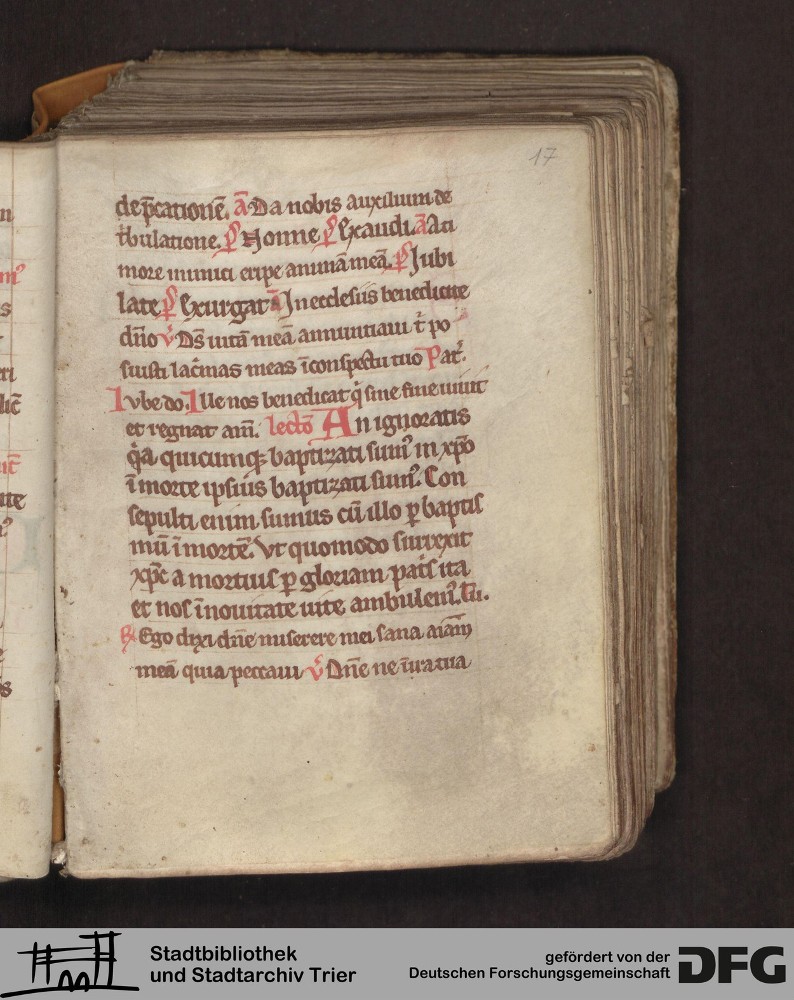 17
dep̄cationē. ā Da nobis auxilium de
t̄bulatione. p̄s Nonne p̄s Exaudi. ā A ti
more inimici eripe animā meā. p̄s Jubi
late p̄s Exurgat ā In ecclesiis benedicite
dn̄o v̄ Ds̄ uitā meā annuntiaui t̄ po
suisti lac̄mas meas īconspectu tuo Pat̄.
Iube do. Ille nos benedicat q̄ sine fine uiuit
et regnat am̄. lectō An ignoratis
q̄a quicumq; baptizati sum᷒ in xp̄o
ī morte ipsius baptizati sum᷒. Con
sepulti enim sumus cū illo p̱ baptis
mū ī mortē. Vt quomodo surrexit
xp̄c a mortuis p̱ gloriam pat̄s ita
et nos ī nouitate uite ambulem᷒. tu.
℟ Ego dixi dn̄e miserere mei sana aīam
meā quia peccaui v̄ Dn̄e ne ī ira tua
Stadtbibliothek
und Stadtarchiv Trier
gefördert von der
Deutschen Forschungsgemeinschaft
DFG